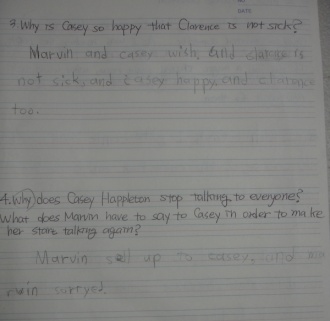 DATE
3. Why is Casey so happy that Clarence is not sick?
Marvin and casey wish, and clarence is
not sick, and casey happy, and clarence
too.
4. Why does Casey Happleton stop talking to everyone?
What does Marvin have to say to Casey in order to make
her start talking again?
Marvin sell up to casey, and ma
rvin sorryed.